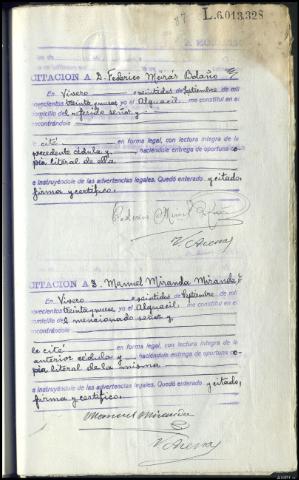 87 L.6.013.328
CITACION A D. Federico Meirás Bolaño
En Vivero veintidos Septiembre de mil
novecientos treinta y nueve yo el Alguacil, me constituí en el
domicilio del referido señor y
encontrándole
le cité en forma legal, con lectura íntegra de la
precedente cédula y haciéndole entrega de oportuna co-
pia literal de ella
e instruyéndole de las advertencias legales. Quedó enterado y citado,
firma y certifico.
V. Arenas
CITACION A D. Manuel Miranda Miranda
En Vivero veintidos de Septiembre de mil
novecientos treinta y nueve yo el Alguacil, me constituí en el
domicilio del mencionado señor y
encontrándole
le cité en forma legal, con lectura íntegra de la
anterior cédula y haciéndole entrega de oportuna co-
pia literal de la misma
e instruyéndole de las advertencias legales. Quedó enterado y citado,
firma y certifico.
Manuel Miranda
V. Arenas